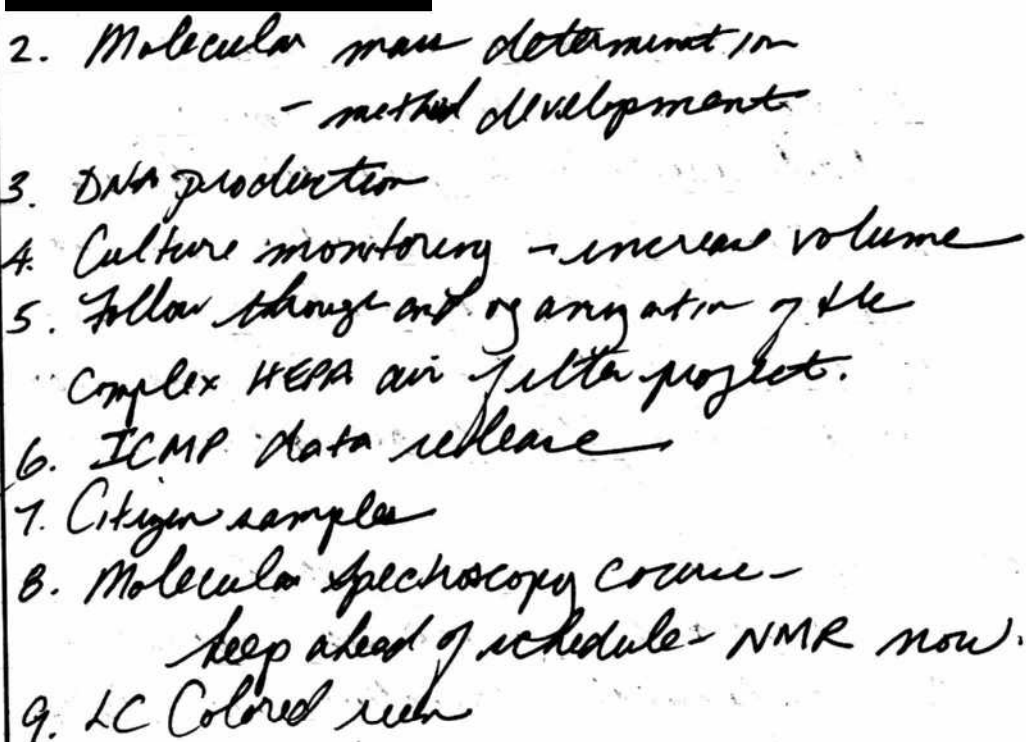 2. Molecular mass determination
- method development
3. DNA production
4. Culture monitoring - increase volume
5. Follow through and organization of the
Complex HEPA air filter project.
6. ICMP data release
7. Citizen samples
8. Molecular spectroscopy course -
keep ahead of schedule - NMR now.
9. LC Colored run